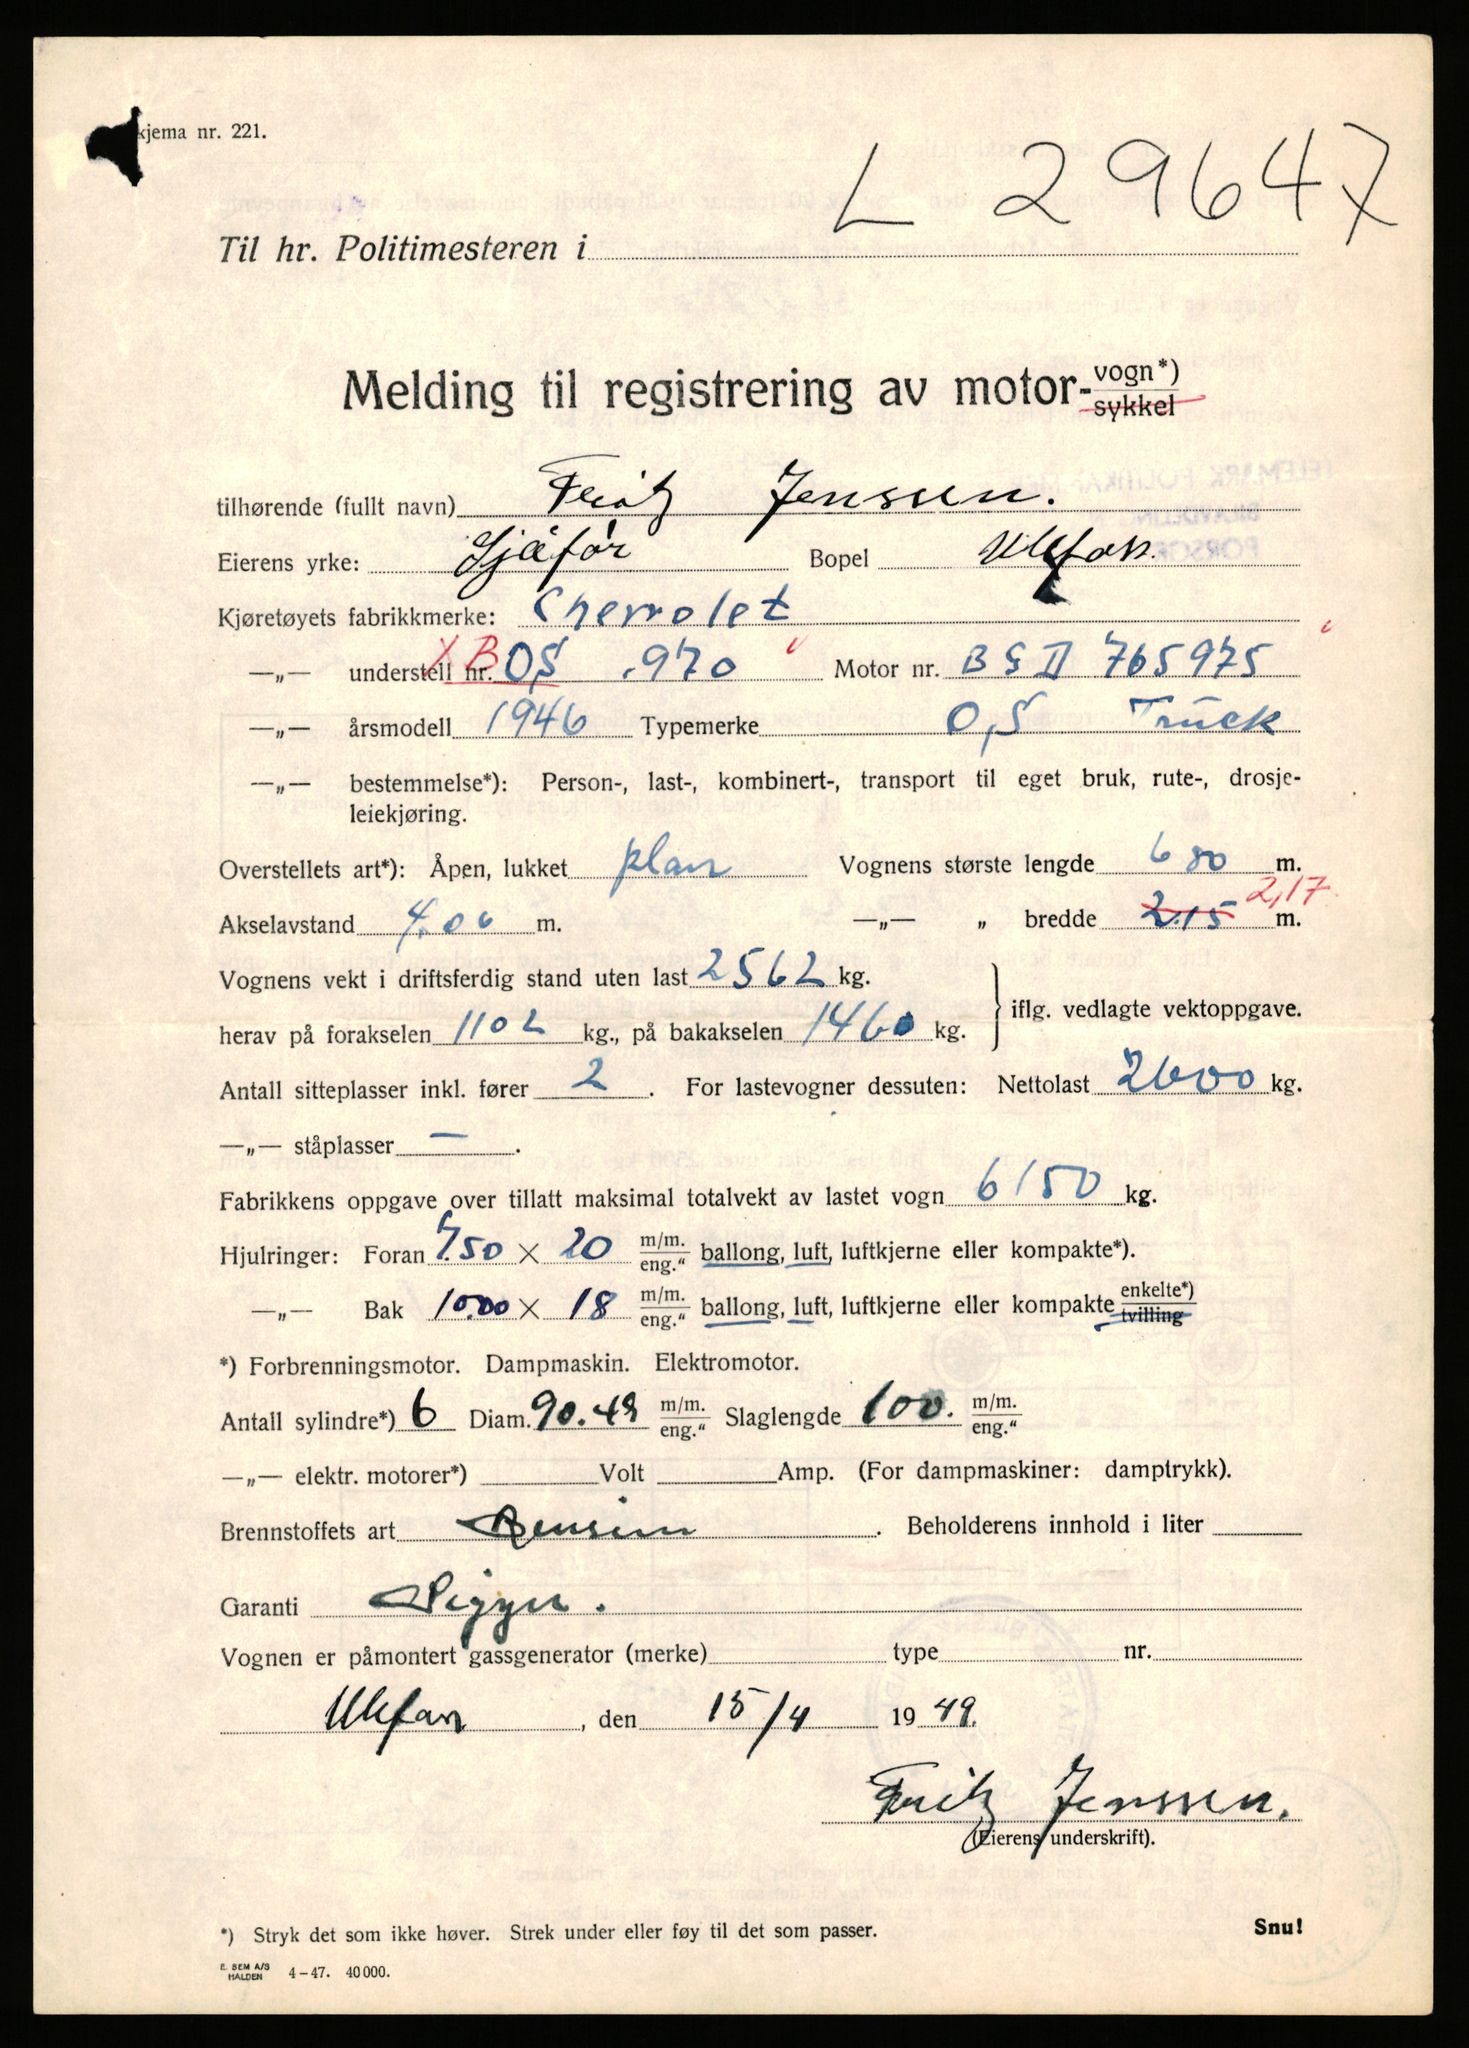 kjema nr. 221.
L 29647
Til hr. Politimesteren i
Melding til registrering av motor-vogn*)
sykkel
tilhørende (fullt navn) Fritz Jenssen.
Eierens yrke: Sjåfør Bopel Ulefoss.
Kjøretøyets fabrikkmerke: Chevrolet
—„— understell nr. XB O,S .970 Motor nr. BG II 765975
—„— årsmodell 1946 Typemerke O,S Truck
—„— bestemmelse*): Person-, last-, kombinert-, transport til eget bruk, rute-, drosje-
leiekjøring.
Overstellets art*): Åpen, lukket plan Vognens største lengde 6 80 m.
Akselavstand 4.06 m. —„— „ bredde 2.15 2,17 m.
Vognens vekt i driftsferdig stand uten last 2562 kg.
herav på forakselen 1102 kg., på bakakselen 1460 kg.
iflg. vedlagte vektoppgave.
Antall sitteplasser inkl. fører 2 . For lastevogner dessuten: Nettolast 2600 kg.
—„— ståplasser — .
Fabrikkens oppgave over tillatt maksimal totalvekt av lastet vogn 6150 kg.
Hjulringer: Foran 7.50 × 20 m/m. eng.“ ballong, luft, luftkjerne eller kompakte*).
—„— Bak 10.00 × 18 m/m. eng.“ ballong, luft, luftkjerne eller kompakte enkelte*) tvilling
*) Forbrenningsmotor. Dampmaskin. Elektromotor.
Antall sylindre*) 6 Diam. 90.49 m/m. eng.“ Slaglengde 100. m/m. eng.“
—„— elektr. motorer*) Volt Amp. (For dampmaskiner: damptrykk).
Brennstoffets art Bensin . Beholderens innhold i liter
Garanti Sigyn.
Vognen er påmontert gassgenerator (merke) type nr.
Ulefoss, den 15/4 1949.
Fritz Jenssen.
(Eierens underskrift).
*) Stryk det som ikke høver. Strek under eller føy til det som passer.
Snu!
E. SEM A/S
HALDEN 4–47. 40 000.